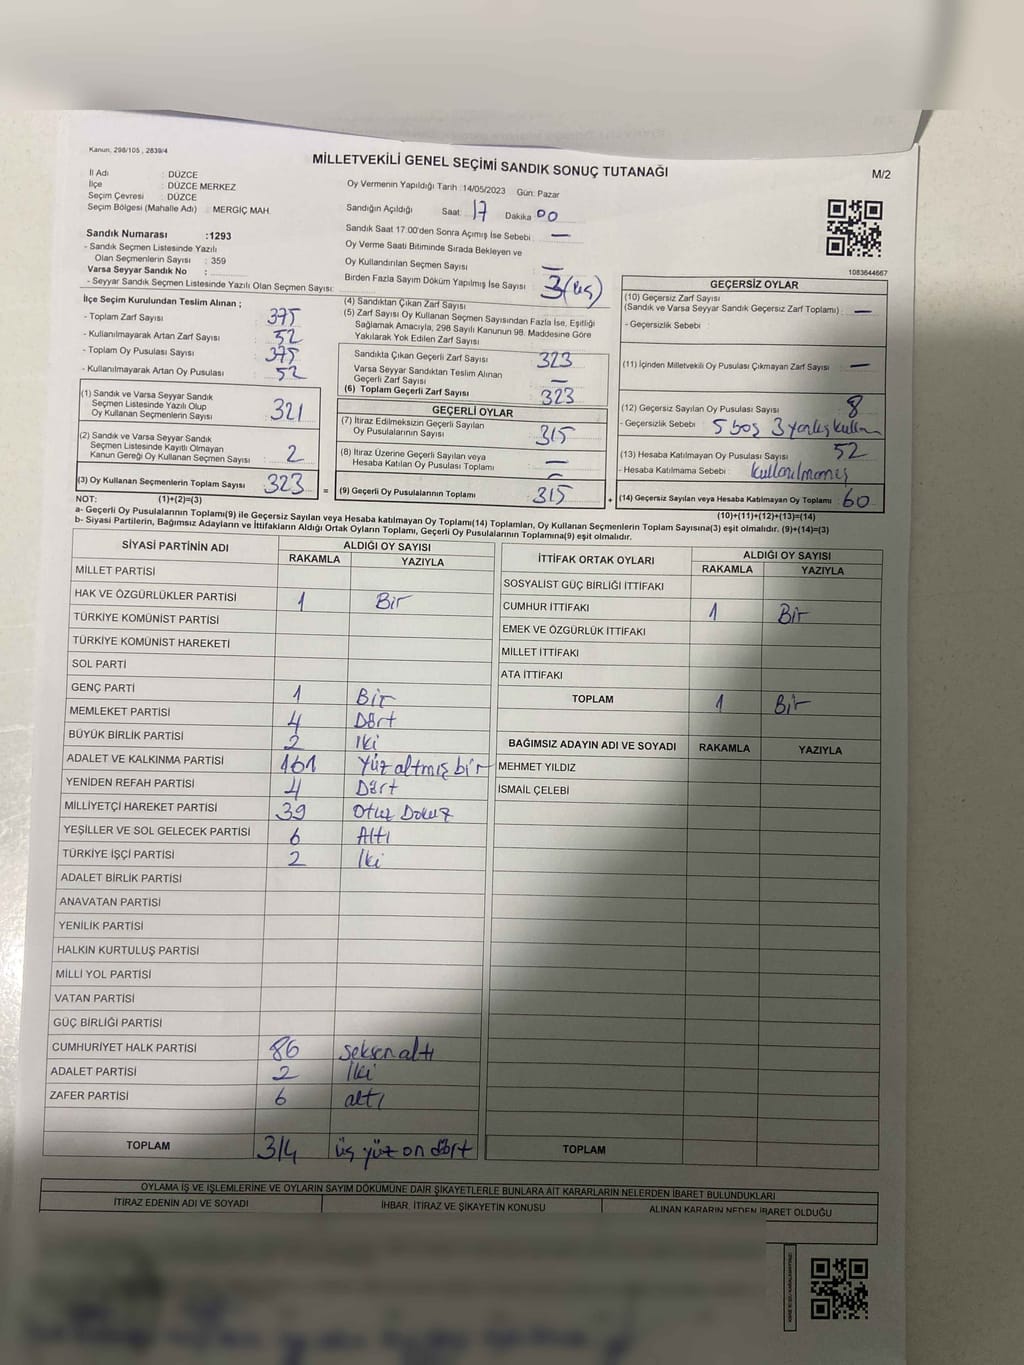 Kanun, 298/105 , 2839/4
MİLLETVEKİLİ GENEL SEÇİMİ SANDIK SONUÇ TUTANAĞI
M/2
İl Adı : DÜZCE
İlçe : DÜZCE MERKEZ
Seçim Çevresi : DÜZCE
Seçim Bölgesi (Mahalle Adı) : MERGİÇ MAH.
Sandık Numarası :1293
- Sandık Seçmen Listesinde Yazılı
Olan Seçmenlerin Sayısı : 359
Varsa Seyyar Sandık No :
- Seyyar Sandık Seçmen Listesinde Yazılı Olan Seçmen Sayısı:
Oy Vermenin Yapıldığı Tarih :14/05/2023 Gün: Pazar
Sandığın Açıldığı Saat 17 Dakika 00
Sandık Saat 17.00'den Sonra Açımış İse Sebebi : —
Oy Verme Saati Bitiminde Sırada Bekleyen ve
Oy Kullandırılan Seçmen Sayısı —
Birden Fazla Sayım Döküm Yapılmış İse Sayısı 3 (üç)
1083644667
İlçe Seçim Kurulundan Teslim Alınan ;
- Toplam Zarf Sayısı : 375
- Kullanılmayarak Artan Zarf Sayısı : 52
- Toplam Oy Pusulası Sayısı : 375
- Kullanılmayarak Artan Oy Pusulası : 52
(1) Sandık ve Varsa Seyyar Sandık
Seçmen Listesinde Yazılı Olup
Oy Kullanan Seçmenlerin Sayısı 321
(2) Sandık ve Varsa Seyyar Sandık
Seçmen Listesinde Kayıtlı Olmayan
Kanun Gereği Oy Kullanan Seçmen Sayısı 2
(3) Oy Kullanan Seçmenlerin Toplam Sayısı 323
(4) Sandıktan Çıkan Zarf Sayısı
(5) Zarf Sayısı Oy Kullanan Seçmen Sayısından Fazla İse, Eşitliği
Sağlamak Amacıyla, 298 Sayılı Kanunun 98. Maddesine Göre
Yakılarak Yok Edilen Zarf Sayısı
Sandıkta Çıkan Geçerli Zarf Sayısı 323
Varsa Seyyar Sandıktan Teslim Alınan
Geçerli Zarf Sayısı —
(6) Toplam Geçerli Zarf Sayısı 323
GEÇERLİ OYLAR
(7) İtiraz Edilmeksizin Geçerli Sayılan
Oy Pusulalarının Sayısı 315
(8) İtiraz Üzerine Geçerli Sayılan veya
Hesaba Katılan Oy Pusulası Toplamı —
= (9) Geçerli Oy Pusulalarının Toplamı 315 +
GEÇERSİZ OYLAR
(10) Geçersiz Zarf Sayısı
(Sandık ve Varsa Seyyar Sandık Geçersiz Zarf Toplamı) : —
- Geçersizlik Sebebi :
(11) İçinden Milletvekili Oy Pusulası Çıkmayan Zarf Sayısı —
(12) Geçersiz Sayılan Oy Pusulası Sayısı 8
- Geçersizlik Sebebi : 5 boş 3 yanlış kullan
(13) Hesaba Katılmayan Oy Pusulası Sayısı 52
- Hesaba Katılmama Sebebi : kullanılmamış
(14) Geçersiz Sayılan veya Hesaba Katılmayan Oy Toplamı 60
NOT: (1)+(2)=(3)
(10)+(11)+(12)+(13)=(14)
a- Geçerli Oy Pusulalarının Toplamı(9) ile Geçersiz Sayılan veya Hesaba katılmayan Oy Toplamı(14) Toplamları, Oy Kullanan Seçmenlerin Toplam Sayısına(3) eşit olmalıdır. (9)+(14)=(3)
b- Siyasi Partilerin, Bağımsız Adayların ve İttifakların Aldığı Ortak Oyların Toplamı, Geçerli Oy Pusulalarının Toplamına(9) eşit olmalıdır.
SİYASİ PARTİNİN ADI
ALDIĞI OY SAYISI
RAKAMLA YAZIYLA
MİLLET PARTİSİ
HAK VE ÖZGÜRLÜKLER PARTİSİ 1 Bir
TÜRKİYE KOMÜNİST PARTİSİ
TÜRKİYE KOMÜNİST HAREKETİ
SOL PARTİ
GENÇ PARTİ 1 Bir
MEMLEKET PARTİSİ 4 Dört
BÜYÜK BİRLİK PARTİSİ 2 İki
ADALET VE KALKINMA PARTİSİ 161 Yüz altmış bir
YENİDEN REFAH PARTİSİ 4 Dört
MİLLİYETÇİ HAREKET PARTİSİ 39 Otuz Dokuz
YEŞİLLER VE SOL GELECEK PARTİSİ 6 Altı
TÜRKİYE İŞÇİ PARTİSİ 2 İki
ADALET BİRLİK PARTİSİ
ANAVATAN PARTİSİ
YENİLİK PARTİSİ
HALKIN KURTULUŞ PARTİSİ
MİLLİ YOL PARTİSİ
VATAN PARTİSİ
GÜÇ BİRLİĞİ PARTİSİ
CUMHURİYET HALK PARTİSİ 86 seksen altı
ADALET PARTİSİ 2 İki
ZAFER PARTİSİ 6 altı
TOPLAM 314 üç yüz on dört
İTTİFAK ORTAK OYLARI
ALDIĞI OY SAYISI
RAKAMLA YAZIYLA
SOSYALİST GÜÇ BİRLİĞİ İTTİFAKI
CUMHUR İTTİFAKI 1 Bir
EMEK VE ÖZGÜRLÜK İTTİFAKI
MİLLET İTTİFAKI
ATA İTTİFAKI
TOPLAM 1 Bir
BAĞIMSIZ ADAYIN ADI VE SOYADI RAKAMLA YAZIYLA
MEHMET YILDIZ
İSMAİL ÇELEBİ
TOPLAM
OYLAMA İŞ VE İŞLEMLERİNE VE OYLARIN SAYIM DÖKÜMÜNE DAİR ŞİKAYETLERLE BUNLARA AİT KARARLARIN NELERDEN İBARET BULUNDUKLARI
İTİRAZ EDENİN ADI VE SOYADI
İHBAR, İTİRAZ VE ŞİKAYETİN KONUSU
ALINAN KARARIN NEDEN İBARET OLDUĞU